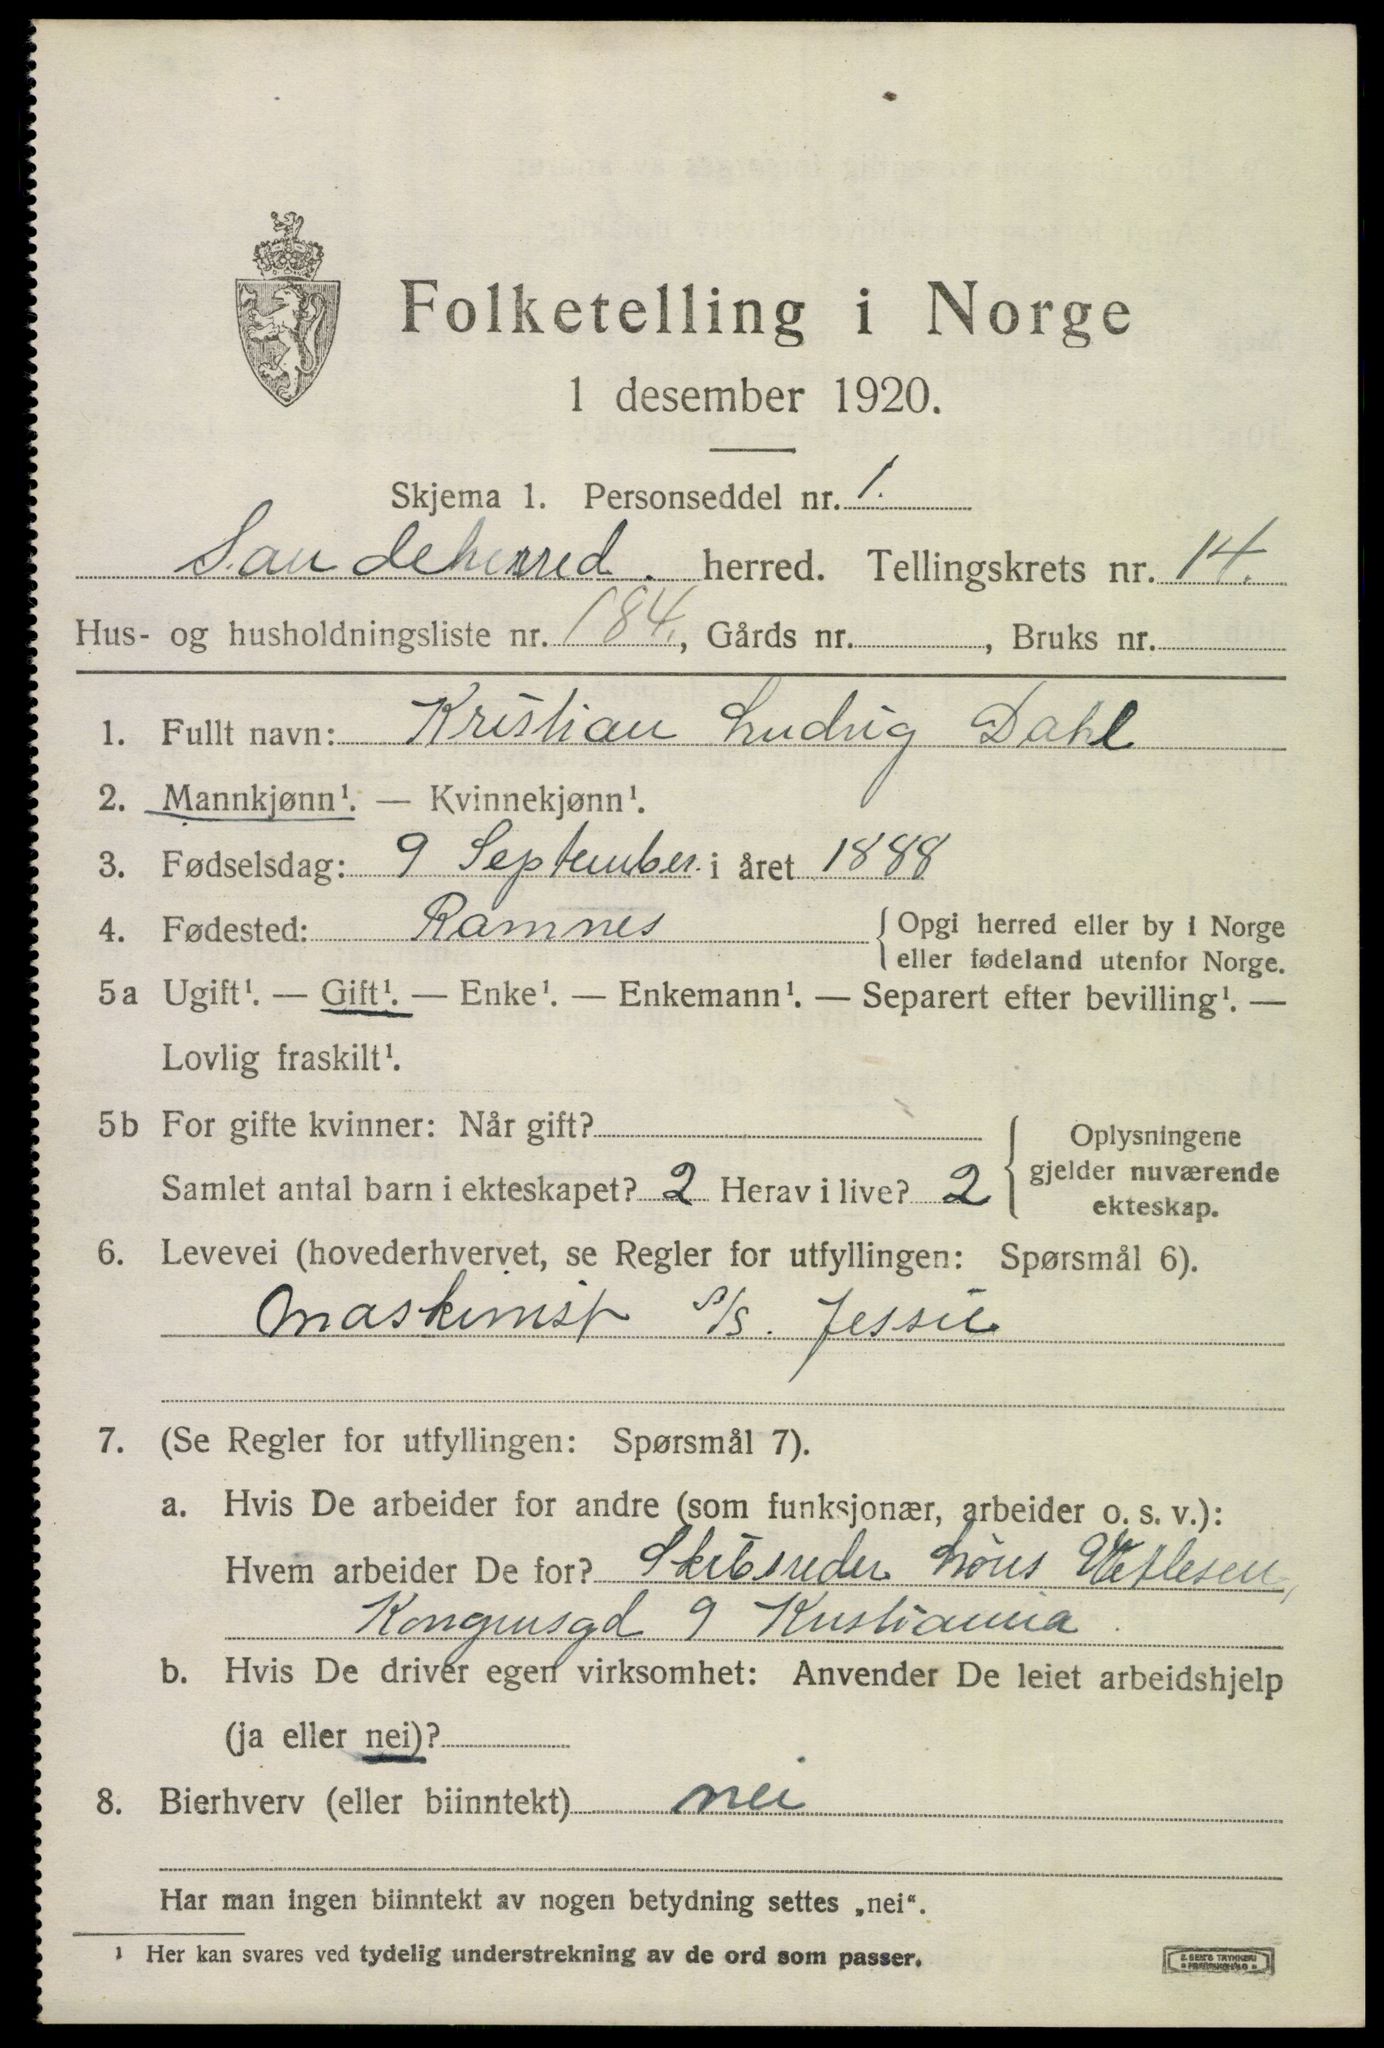 Folketelling i Norge
1 desember 1920.
Skjema 1. Personseddel nr. 1.
Sandeherred. herred. Tellingskrets nr. 14.
Hus- og husholdningsliste nr. 184., Gårds nr. , Bruks nr.
1. Fullt navn: Kristian Ludvig Dahl
2. Mannkjønn¹. — Kvinnekjønn¹.
3. Fødselsdag: 9 September i året 1888
4. Fødested: Ramnes { Opgi herred eller by i Norge
eller fødeland utenfor Norge.
5a Ugift¹. — Gift¹. — Enke¹. — Enkemann¹. — Separert efter bevilling¹. —
Lovlig fraskilt¹.
5b For gifte kvinner: Når gift?
Samlet antal barn i ekteskapet? 2 Herav i live? 2
{ Oplysningene
gjelder nuværende
ekteskap.
6. Levevei (hovederhvervet, se Regler for utfyllingen: Spørsmål 6).
Maskinist s/s. Jessie
7. (Se Regler for utfyllingen: Spørsmål 7).
a. Hvis De arbeider for andre (som funksjonær, arbeider o. s. v.):
Hvem arbeider De for? Skibsreder Vetlesen,
Kongensgd 9 Kristiania.
b. Hvis De driver egen virksomhet: Anvender De leiet arbeidshjelp
(ja eller nei)?
8. Bierhverv (eller biinntekt) nei
Har man ingen biinntekt av nogen betydning settes „nei“.
¹ Her kan svares ved tydelig understrekning av de ord som passer.